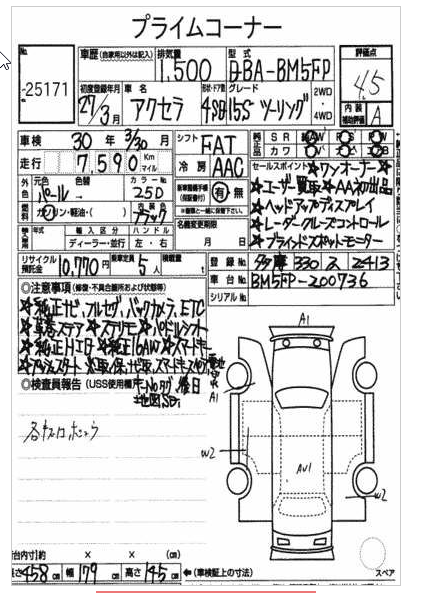 プライムコーナー
No.
-25171
車歴(自家用以外は記入)
排気量
1,500
型式
DBA-BM5FP
評価点
4.5
初度登録年月
27/3月
車名
アクセラ
形状・ドア数
4SD
グレード
15S ツーリング
2WD
・
4WD
内装
補助評価
A
車検 30年 3/30月
シフト
FAT
純正品
SR AW PS PW
カワ
走行 7,590 Km マイル
冷房
AAC
セールスポイント ☆ワンオーナー☆
☆ユーザー買取☆AA初出品
☆ヘッドアップディスプレイ
☆レーダークルーズコントロール
☆ブラインドスポットモニター
外色
元色
パール
色替
→
カラーNo
25D
新車整備手帳
(保証書付)
有・無
※書類と一緒に保管下さい。
燃料
ガソリン・軽油・( )
内装色
ブラック
名義変更期限
月 日
輸入車
年式
輸入区分
ディーラー・並行
ハンドル
左・右
リサイクル預託金
10,770円
乗車定員
5人
積載量
t
登録No
多摩 330 ス 2413
車台No
BM5FP-200736
シリアルNo
◎注意事項(修復・不具合箇所および状態等)
☆純正ナビ,フルセグ,バックカメラ,ETC
☆革巻ステア ☆ステリモ☆パドルシフト
☆純正エアロ☆純正16AW☆スマートキー
☆プッシュスタート
◎検査員報告(USS使用欄)
後日
地図SD
各キズロ ホショウ
A1
A1
W2
AU1
W2
スペア
荷台内寸(約 × × (cm)
長さ458cm 幅179cm 高さ145cm ←(車検証上の寸法)